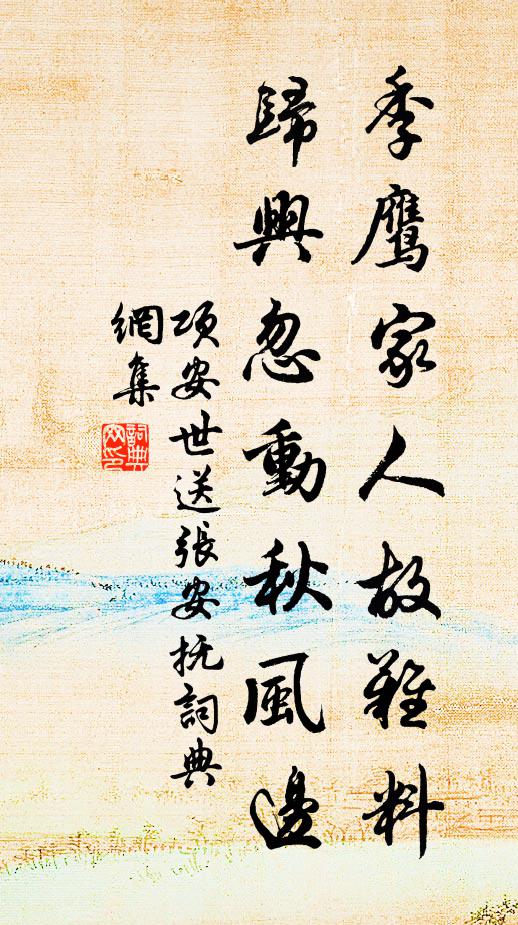 季鷹家人故難料
歸興忽動秋風邊
項安世送張安抚詞典
網集
詞典